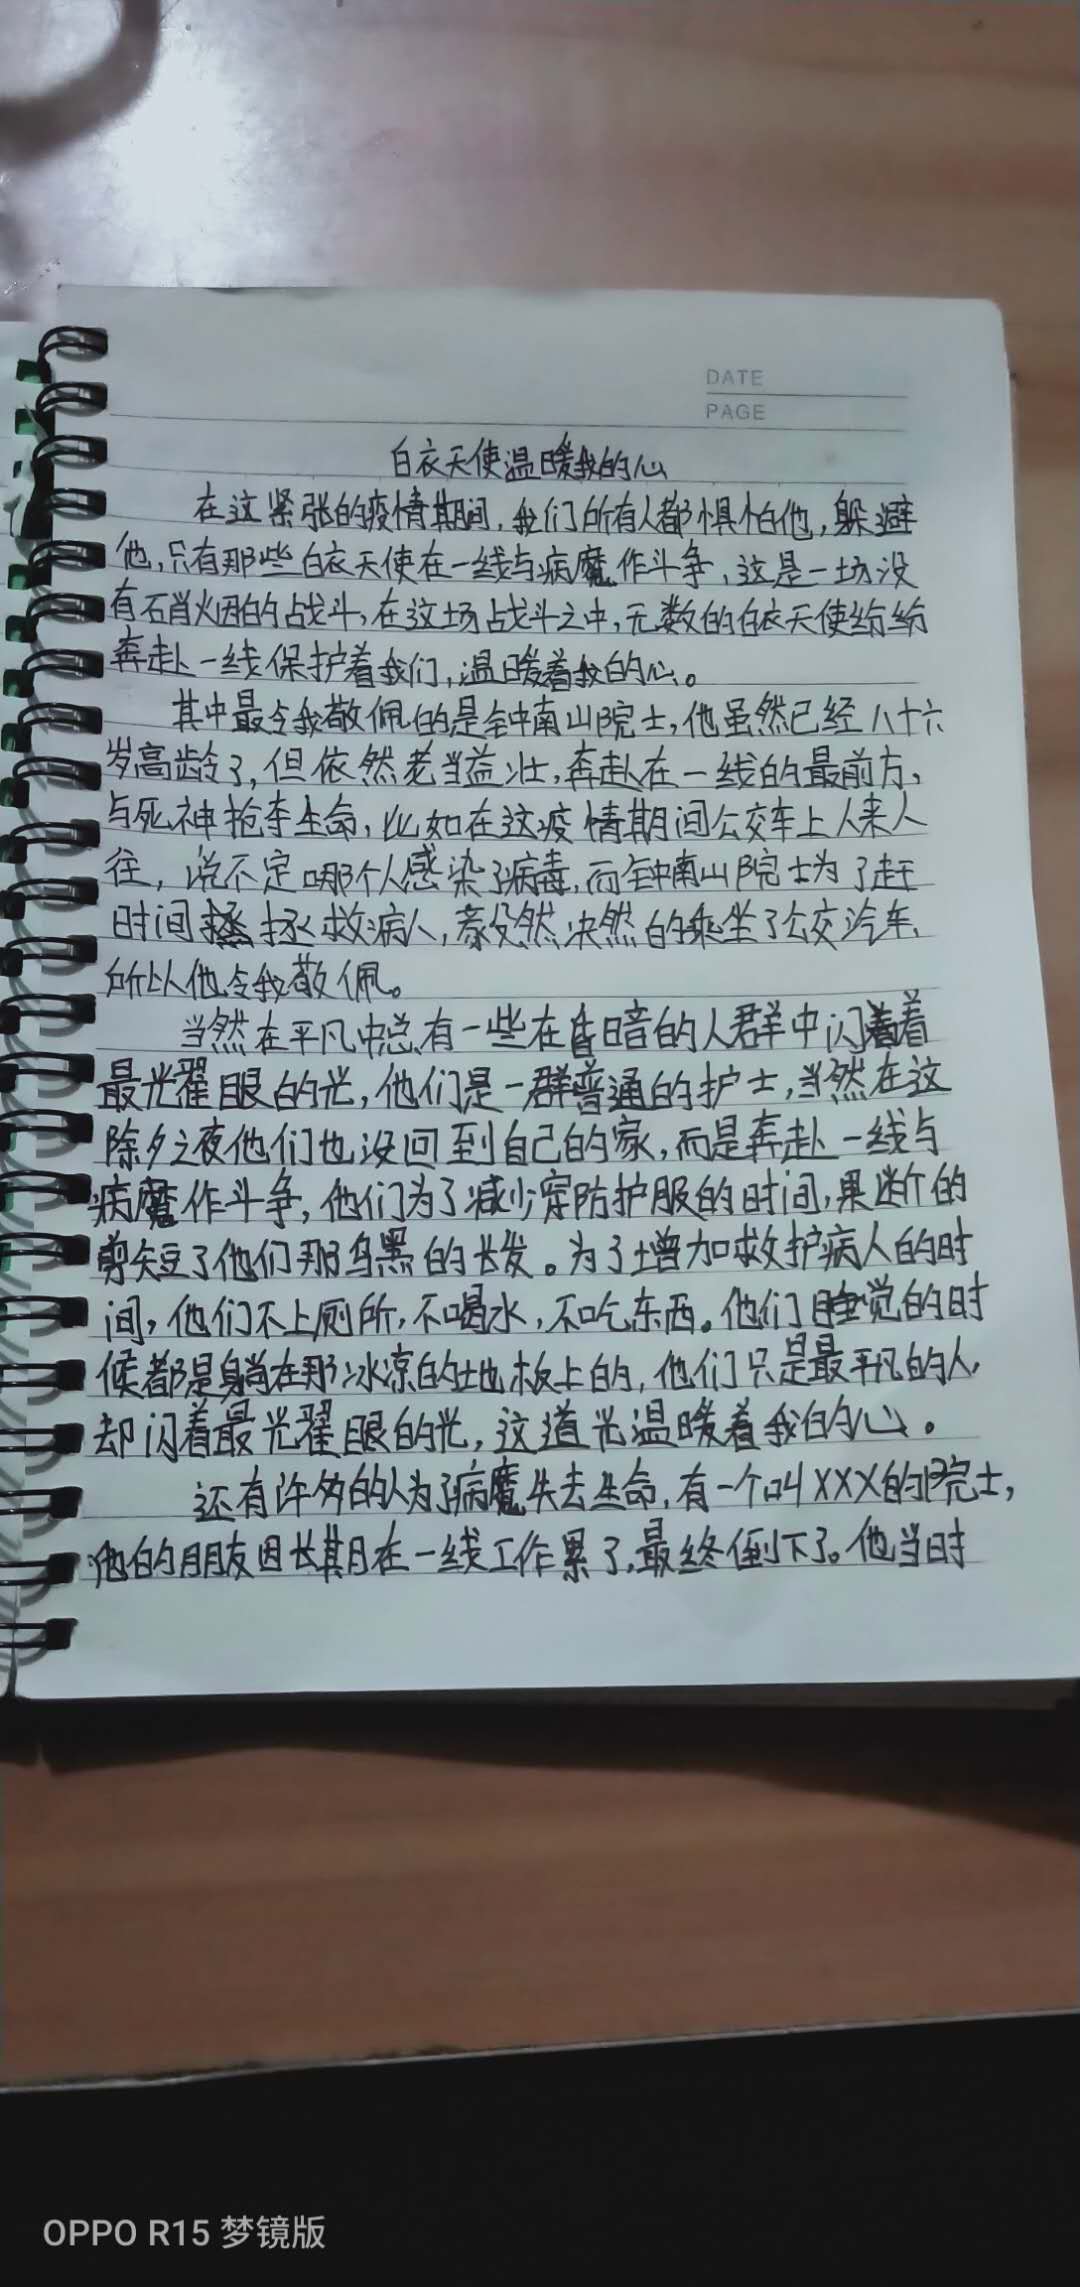 DATE
PAGE
白衣天使温暖我的心
在这紧张的疫情期间,我们所有人都惧怕他,躲避
他,只有那些白衣天使在一线与病魔作斗争,这是一场没
有硝烟的战斗,在这场战斗之中,无数的白衣天使纷纷
奔赴一线保护着我们,温暖着我的心。
其中最令我敬佩的是钟南山院士,他虽然已经八十六
岁高龄了,但依然老当益壮,奔赴在一线的最前方,
与死神抢夺生命,比如在这疫情期间公交车上人来人
往,说不定哪个人感染了病毒,而钟南山院士为了赶
时间拯救病人,毅然决然的乘坐了公交汽车,
所以他令我敬佩。
当然在平凡中总有一些在暗的人群中闪着
最光耀眼的光,他们是一群普通的护士,当然在这
除夕之夜他们也没回到自己的家,而是奔赴一线与
病魔作斗争,他们为了减少穿防护服的时间,果断的
剪短了他们那乌黑的长发。为了增加救护病人的时
间,他们不上厕所,不喝水,不吃东西。他们睡觉的时
候都是躺在那冰凉的地板上的,他们只是最平凡的人,
却闪着最光耀眼的光,这道光温暖着我的心。
还有许多的人为了病魔失去生命,有一个叫XXX的院士,
他的朋友因长期在一线工作累了,最终倒下了。他当时
OPPO R15 梦镜版